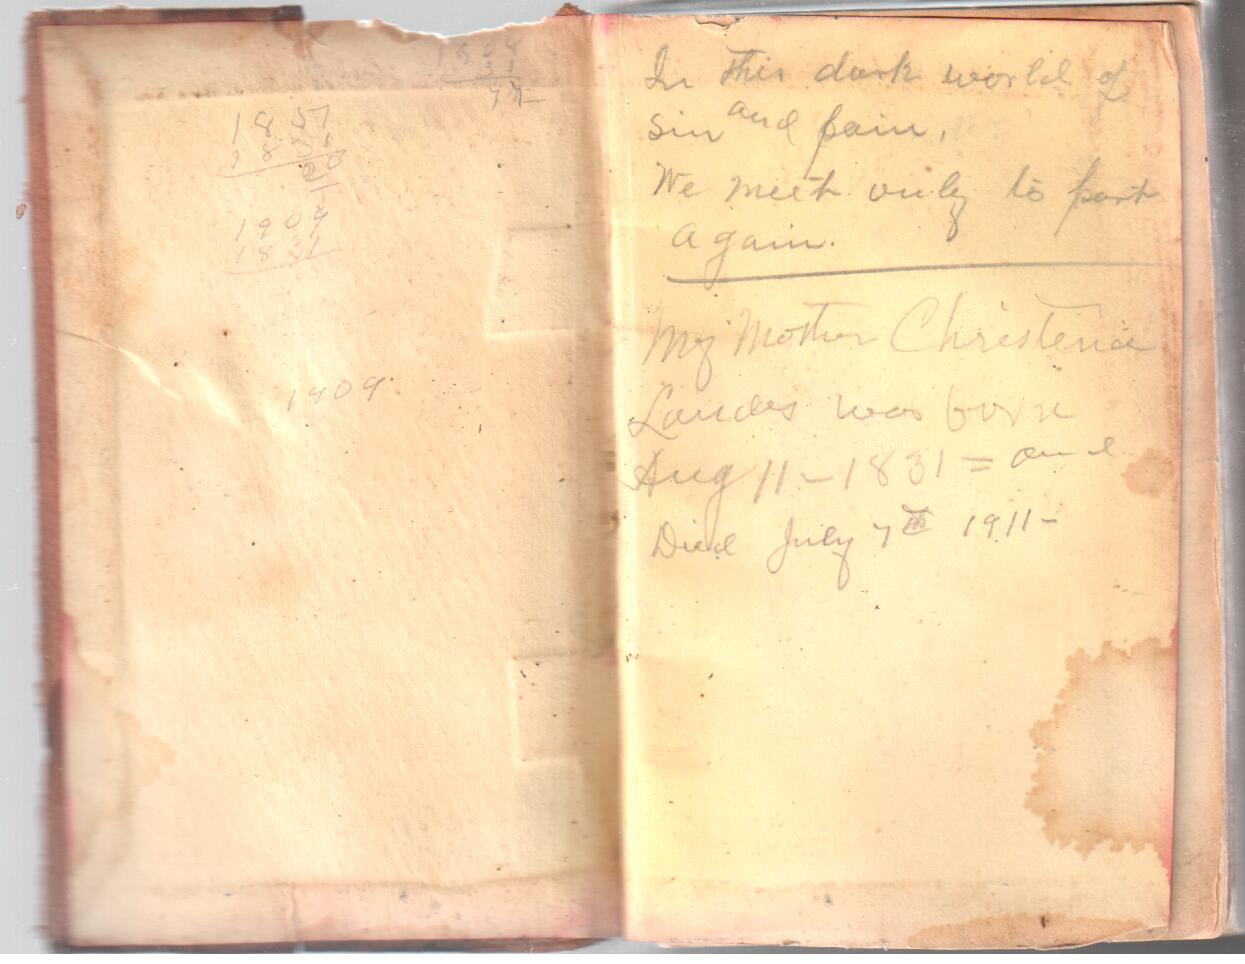 1908
31
77-
1857
1831
26
1909
1831
1909
In this dark world of
sin and pain,
We meet only to part
again.
My Mother Christena
Landes was born
Aug 11 - 1831 = and
Died July 7th 1911-